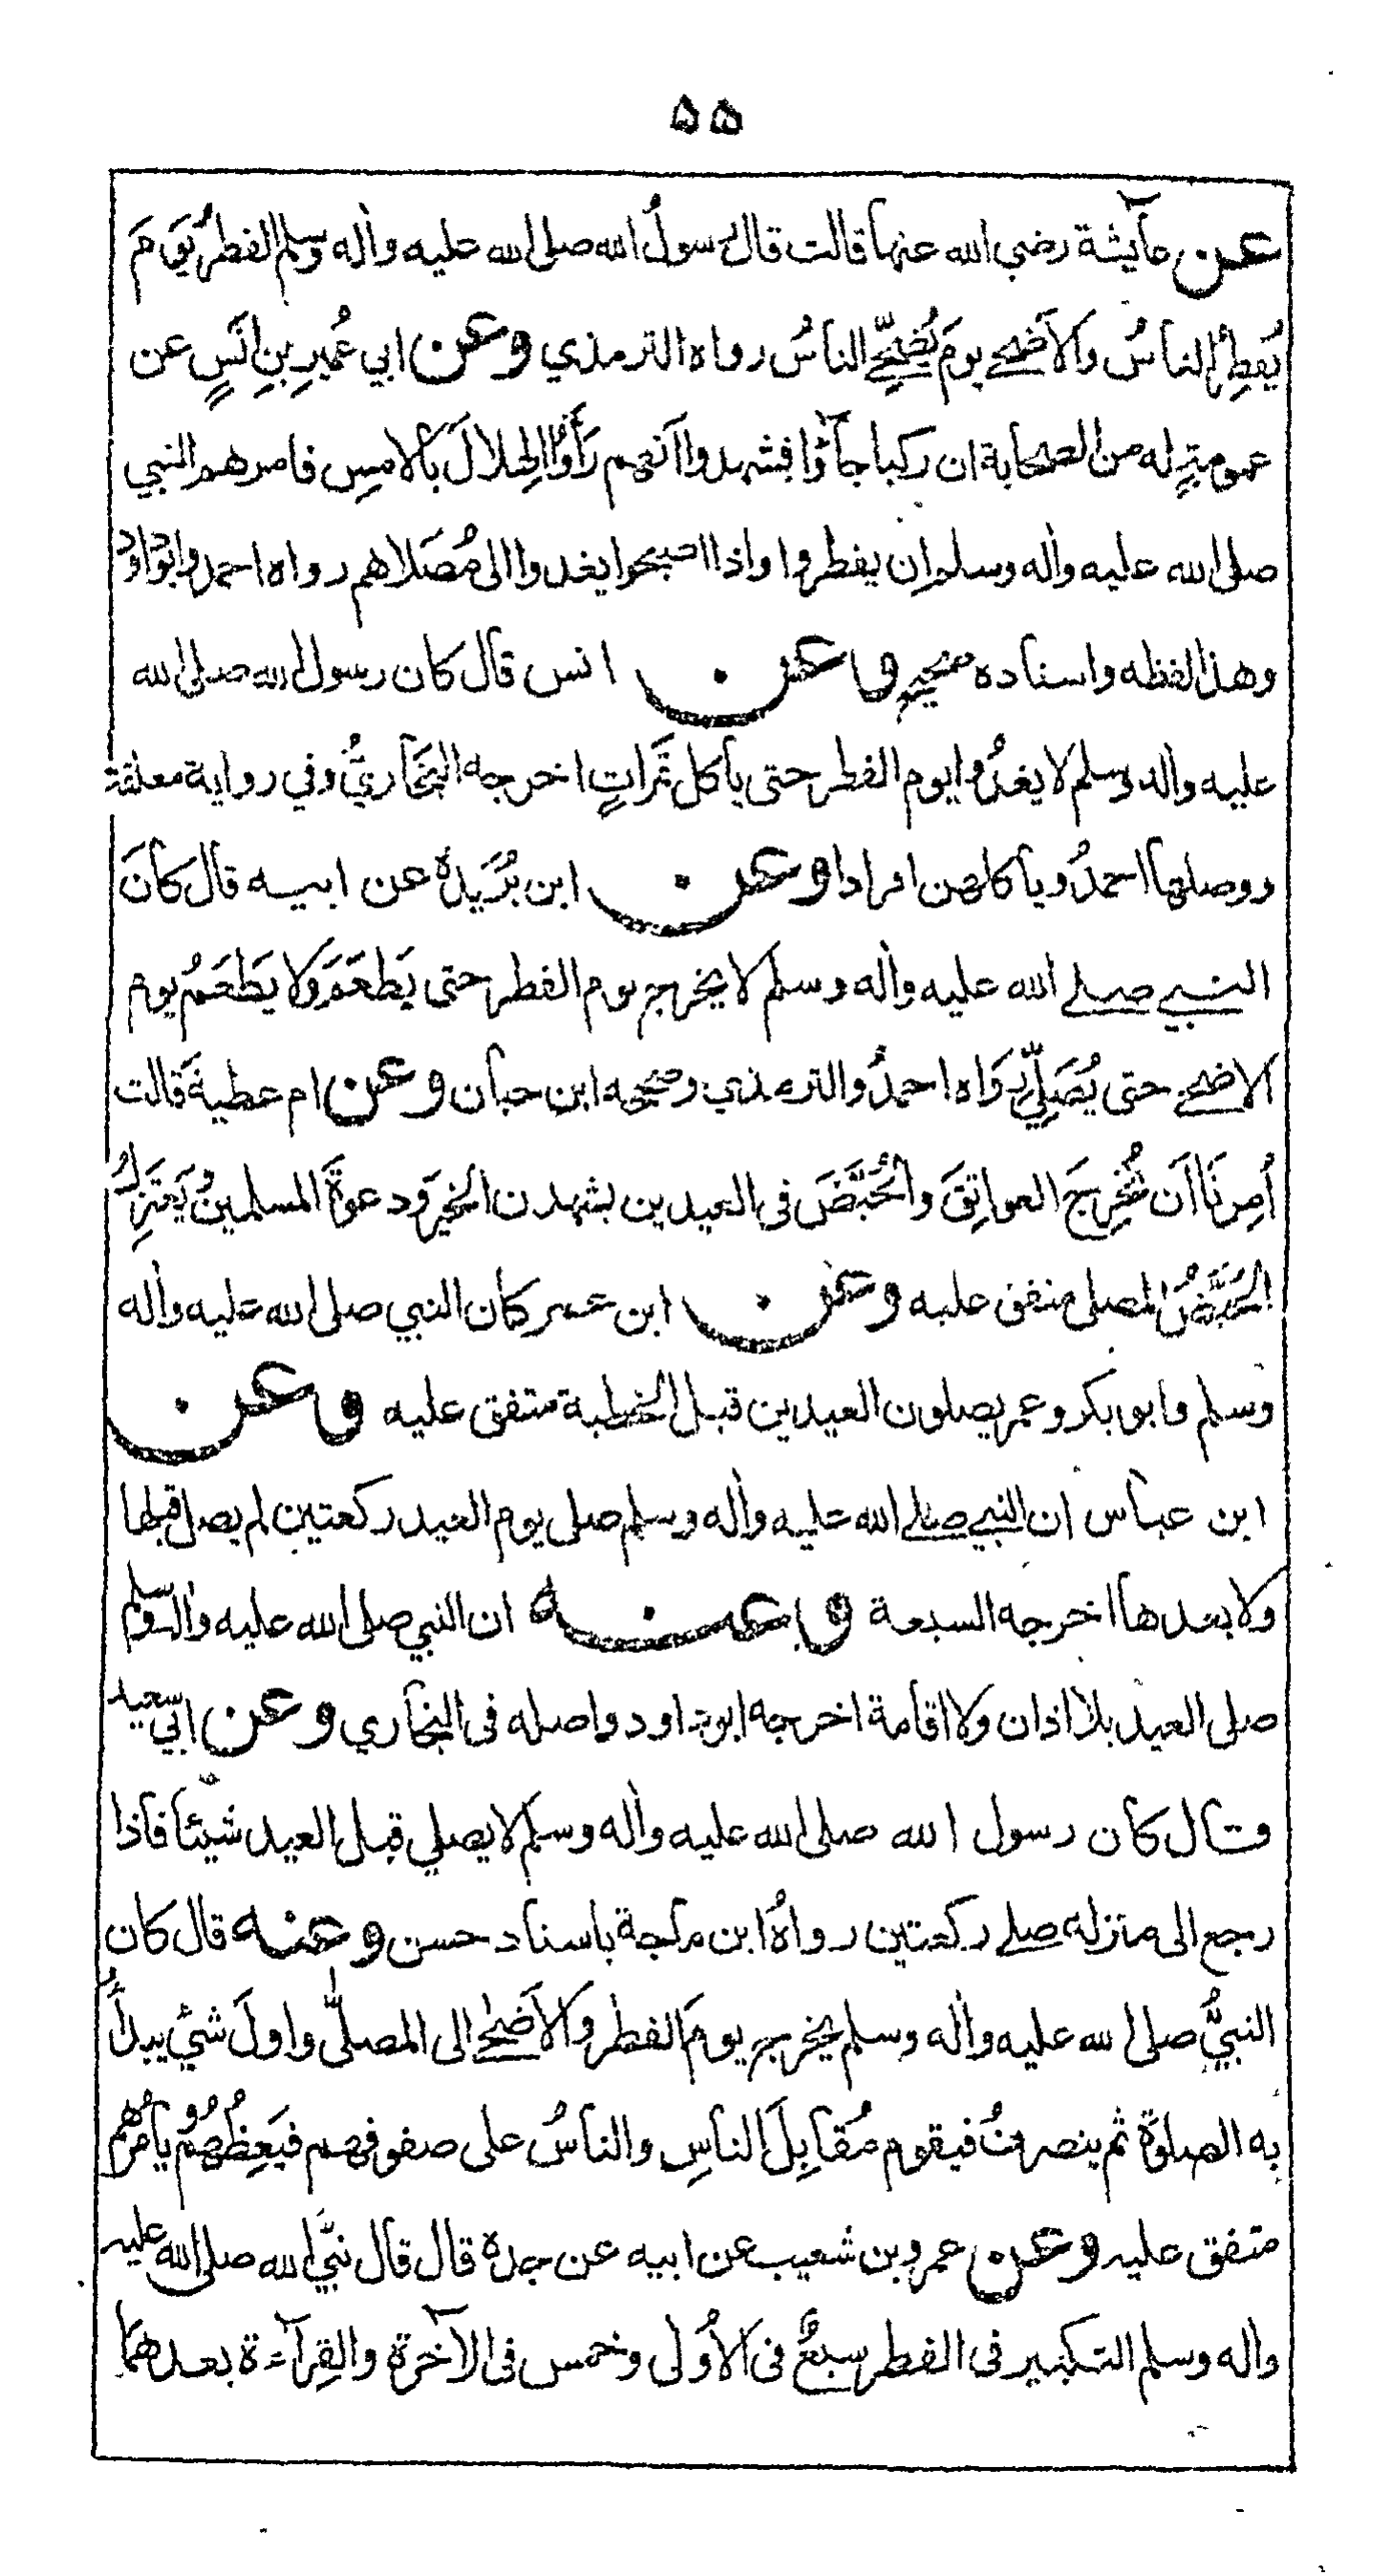 ۵۵
عن عآيشة رضي الله عنها قالت قال رسولُ الله صلى الله عليه واٰله وسلم الفطرُ يَومَ
يُفطِرُ الناسُ والاَضحے يومَ يُضَحِّے الناسُ رواه الترمذي وعن ابي عُمَيرِ بنِ انَسٍ عن
عمومةٍ له من الصحابة ان ركبا جآؤا فشهدوا انهم رَأَوُا الهِلالَ بالامسِ فامرهم النبي
صلى الله عليه واٰله وسلم ان يفطروا واذا اصبحوا يغدوا الى مُصَلاهم رواه احمد وابوداود
وهذا لفظه واسناده صحيح وعن انس قال كان رسول الله صلى الله
عليه واٰله وسلم لا يغدُو ايوم الفطر حتى ياكل تَمَراتٍ اخرجه البُخَاريُّ وفي رواية معلقة
ووصلها احمدُ وياكلهن افرادا وعن ابن بُرَيدة عن ابيه قال كانَ
النبي صلے الله عليه واٰله وسلم لا يخرج يوم الفطر حتى يَطعَمَ ولا يَطعَمُ يوم
الاضحے حتى يُصَلِّيَ رَوَاه احمدُ والترمذي وصححه ابن حبان وعن ام عطية قَالت
اُمِرنَا اَن نُخرِجَ العواتِقَ والحُيَّضَ فى العيدين يشهدن الخيرَ ودعوةَ المسلمين ويَعتَزِلُ
الحُيَّضُ المصلى متفق عليه وعن ابن عمر كان النبي صلى الله عليه واٰله
وسلم وابو بكر وعمر يصلون العيدين قبل الخطبة متفق عليه وعن
ابن عباس ان النبي صلے الله عليه واٰله وسلم صلى يوم العيد ركعتين لم يصل قبلها
ولا بعدها اخرجه السبعة وعنه ان النبي صلى الله عليه واٰله وسلم
صلى العيد بلا اذان ولا اقامة اخرجه ابوداود واصله فى البخاري وعن ابي سعيد
قال كان رسول الله صلى الله عليه واٰله وسلم لا يصلي قبل العيد شيئا فاذا
رجع الى منزله صلے ركعتين رواهُ ابن ماجة باسناد حسن وعنه قال كان
النبيُّ صلى الله عليه واٰله وسلم يخرج يومَ الفطر والاَضحٰے الى المصلّٰى واولَ شيءٍ يبدأُ
به الصلوة ثم ينصرفُ فيقوم مُقَابِلَ الناسِ والناسُ على صفوفهم فيَعِظُهُم ويأمُرُهُم
متفق عليه وعن عمرو بن شعيب عن ابيه عن جده قال قال نبيُّ الله صلى الله عليه
واٰله وسلم التكبير فى الفطر سبعٌ فى الاُولى وخمس فى الآخرة والقِرآءة بعدهما